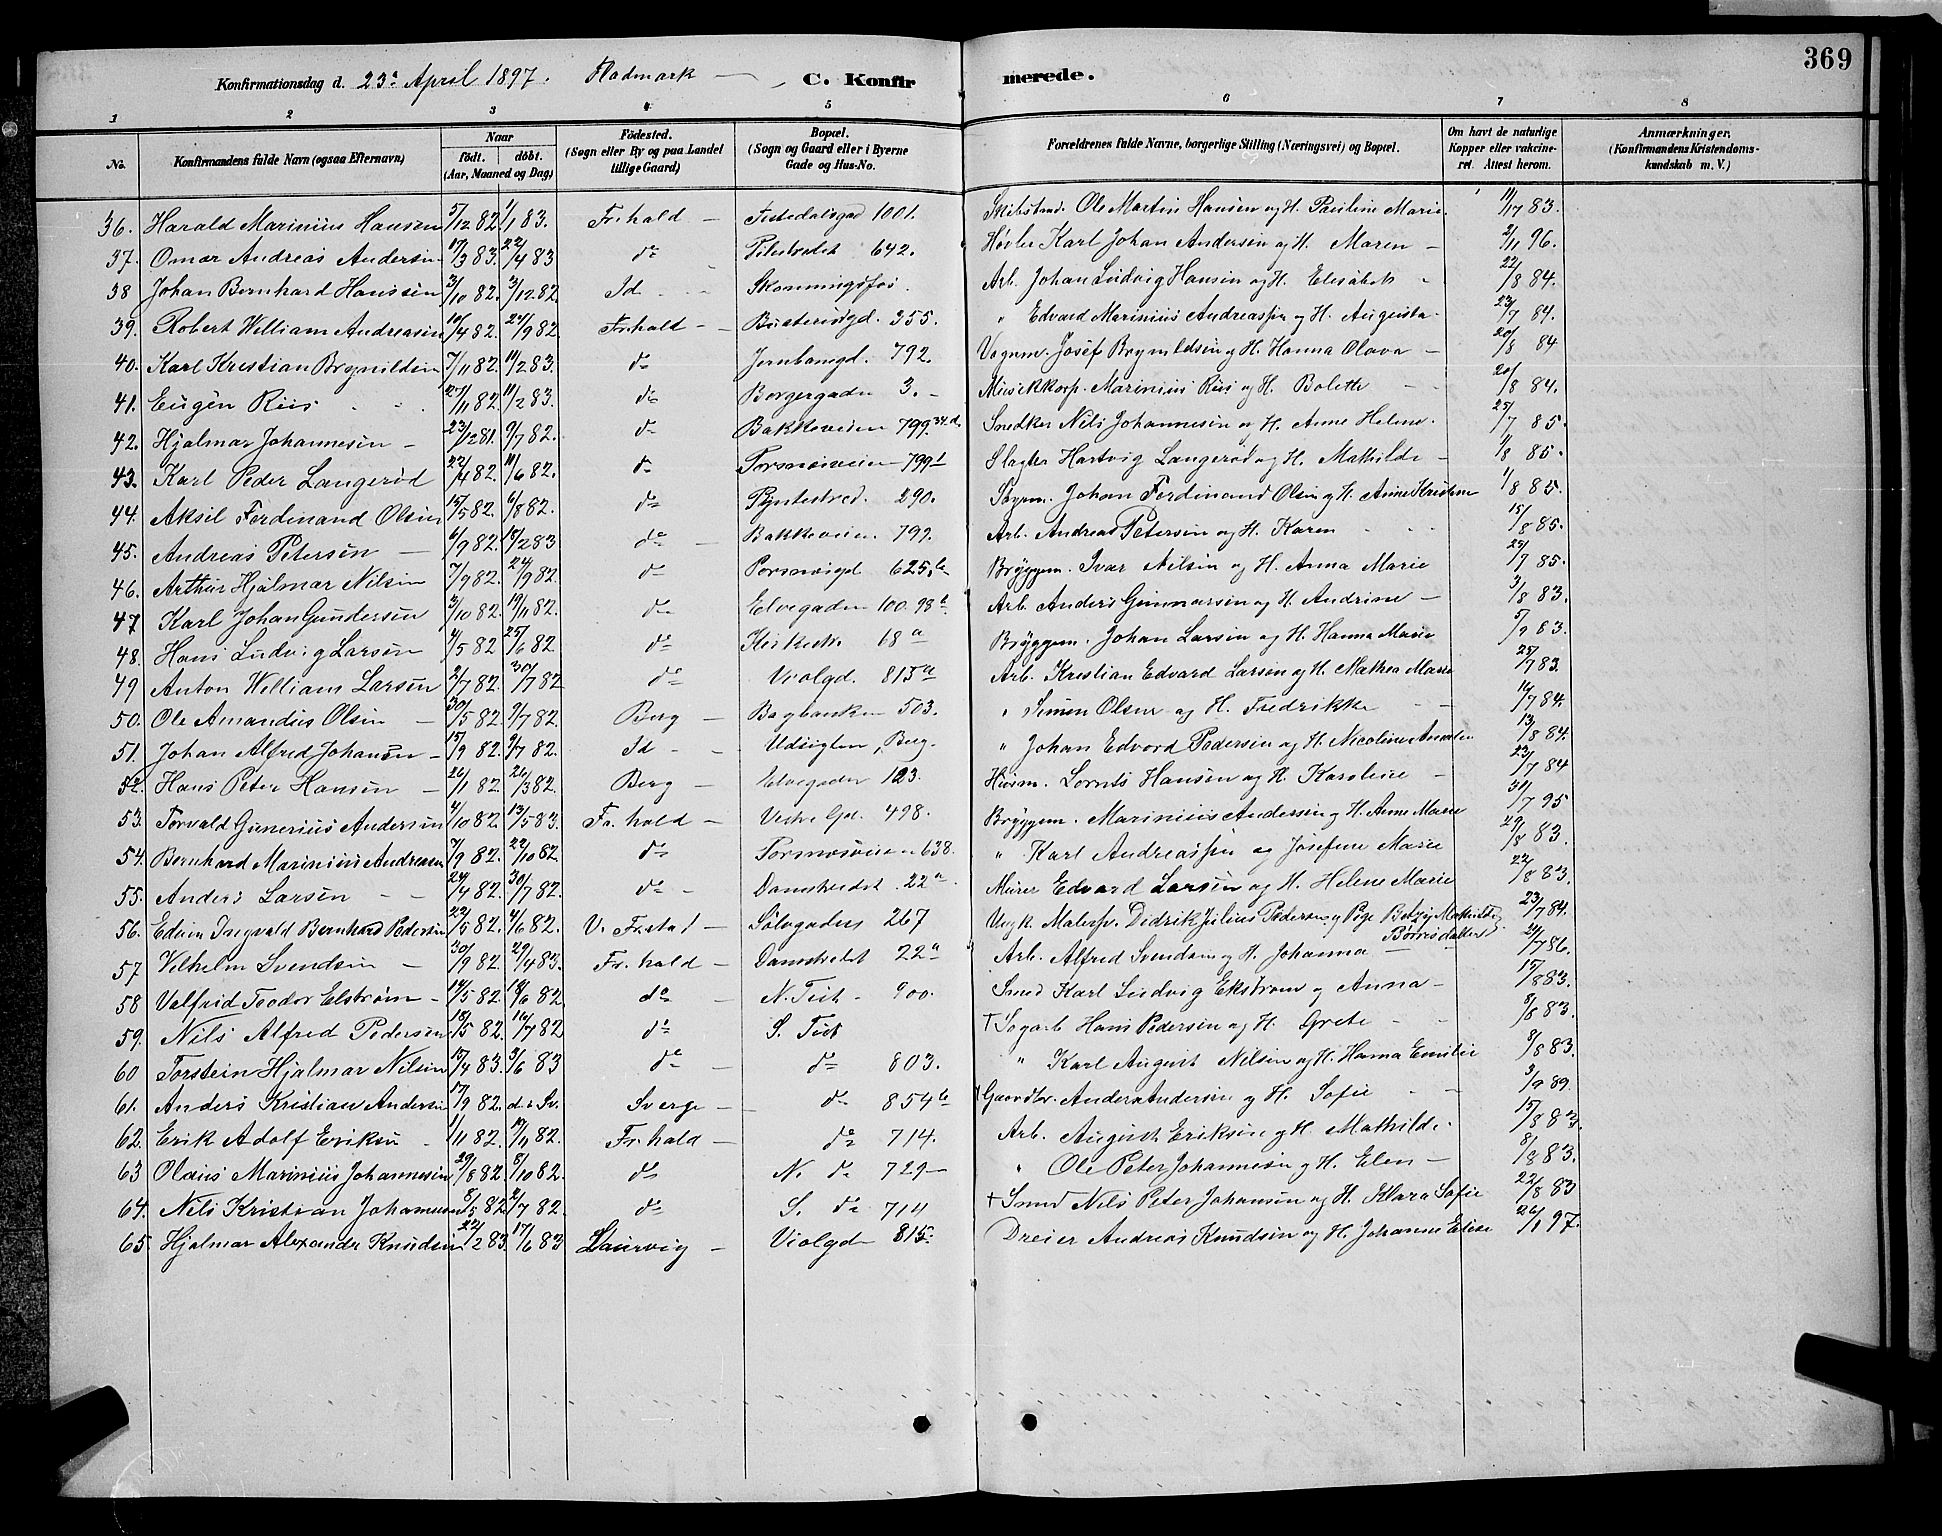 369
Konfirmationsdag d. 23de April 1897. Hadmark — C. Konfirmerede.
1 2 3 4 5 6 7 8
No. Konfirmandens fulde Navn (ogsaa Efternavn) Naar födt. döbt. (Aar, Maaned og Dag) Födested. (Sogn eller By og paa Landet tillige Gaard) Bopæl. (Sogn og Gaard eller i Byerne Gade og Hus-No. Forældrenes fulde Navne, borgerlige Stilling (Næringsvei) og Bopæl. Om havt de naturlige Kopper eller vakcineret. Attest herom. Anmærkninger. (Konfirmandens Kristendomskundskab m. V.)
36. Harald Marinius Hansen 5/12 82. 1/1 83. Fr.hald — Tistedalsgd 1001. Ole Martin Hansen og H. Pauline Marie. 11/7 83.
37. Omar Andreas Andersen 17/3 83. 22/4 83 do Pilestrædet 642. Høvler Karl Johan Andersen og H. Maren — 2/11 96.
38 Johan Bernhard Hanssen 3/10 82. 3/12 82 Id Skonningsfos. Arb. Johan Ludvig Hansen og H. Elisabeth 22/8 84.
39. Robert William Andreasen 10/4 82. 24/9 82 Fr.hald — 355. " Edvard Marinius Andreassen og H. Augusta. 23/7 84.
40. Karl Kristian Brynildsen 7/11 82. 11/2 83. do Jernbanegd. 792. Vognm. Josef Brynildsen og H. Hanna Olava — 20/8 84
41. Eugen Riis 27/11 82. 11/2 83. do Borgergaden 3. — Musikkorp. Marinius Riis og H. Bolette 20/8 84.
42. Hjalmar Johannesen — 23/12 81. 9/7 82. do Bakkeveien 799. Snedker Nils Johannesen og H. Anne Helene. 25/7 85.
43. Karl Peder Langerød 22/4 82. 11/6 82. do 799 Slagter Hartvig Langerød og H. Mathilde — 11/8 85.
44. Aksel Ferdinand Olsen 15/5 82. 6/8 82. do Pyntestred. 290. Johan Ferdinand Olsen og H. Anne Kristine 1/8 85.
45. Andreas Petersen — 6/9 82. 15/2 83 do Bakkeveien 792. Arb. Andreas Petersen og H. Karen 15/8 85.
46. Arthur Hjalmar Nilsen 7/9 82. 24/9 82. do 625. b Bryggem. Ivar Nilsen og H. Anna Marie 25/7 85.
47 Karl Johan Gundersen 3/10 82. 19/11 82. do Elvegaden 100. 98 b Arb. Anders Gunnarsen og H. Andrine — 3/8 83.
48. Hans Ludvig Larsen 4/5 82 25/6 82. do 68 a Bryggem. Johan Larsen og H. Hanna Marie 5/9 83.
49 Anton William Larsen 2/7 82. 30/7 82 do Violgd. 815 a Arb. Kristian Edvard Larsen og H. Mathea Marie 25/7 83.
50. Ole Amandus Olsen — 30/5 82 9/7 82. Berg — Bagbanken 503. " Simen Olsen og H. Fredrikke 16/7 84.
51. Johan Alfred Johansen — 15/9 82. 9/7 82. Id Udsigten, Berg. " Johan Edvard Pedersen og H. Nicoline 13/8 84.
52. Hans Peter Hansen — 26/1 82. 26/3 82. Berg — Elvegaden 123. Lornts Hansen og H. Karoline — 23/7 84
53. Torvald Gunerius Andersen 4/10 82. 13/5 83. Fr.hald — Vedre Gd. 498. Bryggem. Marinius Anderssen og H. Anne Marie 31/7 95
54. Bernhard Marinius Andreasen 7/9 82. 22/10 82. do 638. " Karl Andreassen og Josefine Marie 29/8 83.
55. Anders Larsen 24/4 82. 30/7 82. do Damstredet 22 a. Murer Edvard Larsen og H. Helene Marie 22/8 83.
56. Edvin Ingvald Bernhard Pedersen 22/5 82. 4/6 82. V. Fr.stad Sölvgaden 267 Ungk. Malersv. Didrik Julius Pedersen og Pige Betzy Mathilde Børresdatter 23/7 84.
57 Vilhelm Svendsen — 30/9 82. 29/4 83. Fr.hald — Damstredet 22 a Arb. Alfred Svendsen og H. Johanna — 21/7 86.
58 Valfrid Teodor Ekstrøm — 14/5 82. 18/6 82 do N. Tist 900. Smed Karl Ludvig Ekstrøm og Anna — 15/8 83.
59. Nils Alfred Pedersen 18/5 82. 16/7 82 do S. Tist † Sagarb Hans Pedersen og H. Grete 8/8 83.
60 Torstein Hjalmar Nilsen 15/4 83. 3/6 83 do do 803. " Karl August Nilsen og H. Hanna Emilie 9/8 83.
61. Anders Kristian Andersen 17/9 82. d. i Sv. Sverge — do 854 b Anders Andersen og H. Sofie 3/9 89.
62. Erik Adolf Eriksen 1/11 82. 19/11 82. Fr.hald — do 714. Arb. August Eriksen og H. Mathilde. 15/8 83.
63 Olaus Marinius Johannesen 29/8 82. 8/10 82. do N. do 729 — " Ole Peter Johannesen og H. Elen — 8/8 83.
64. Nils Kristian Johannesen 8/5 82 2/7 82. do S. do 714 † Smed Nils Peter Johansen og H. Klara Sofie 22/8 83
65. Hjalmar Alexander Knudsen 22/2 83. 17/6 83 Laurvig — Violgd 815. Dreier Andreas Knudsen og H. Johanne Elise 26/1 97.